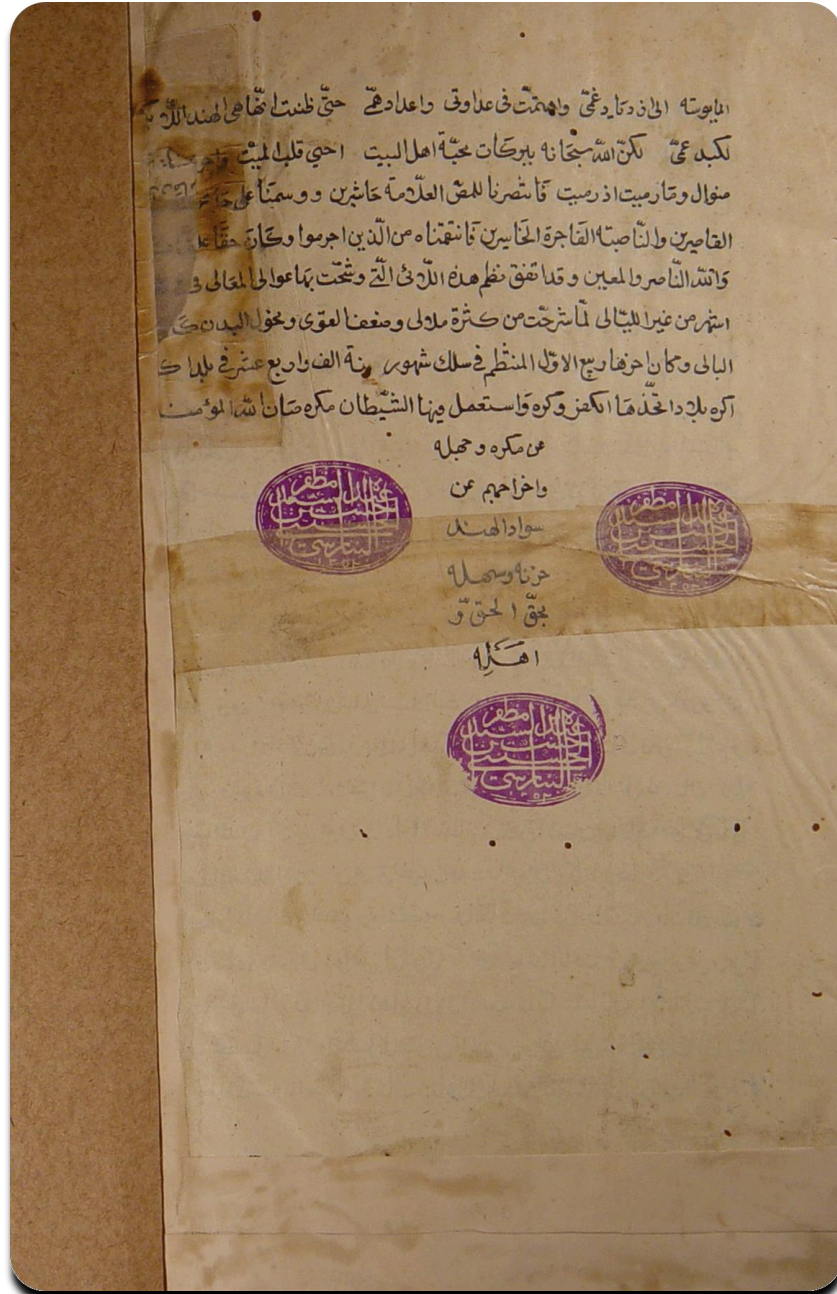 المايوسة الى ازدياد غمّي واهتمّت فى عداوتى واعداد همّي حتّى ظننت انّها هى الهند اللّا
لكبد عمّى لكنّ اللّه سبحانه ببركات محبّة اهل البيت احيي قلب الميّت
منوال وما رميت اذ رميت فانتصرنا للمص العلّامة حاشرين ووسمنا على
القاصرين والنّاصبة الفاجرة الخاسرين فانتقمناه من الّذين اجرموا وكان حقّا
واللّه النّاصر والمعين وقد اتفق نظم هذه اللآلئ الّتي وشّحت بها عوالى المعالى فى
اشهر من غير الليالى لما شرحت من كثرة ملالى وضعف القوى ونحول البدن
البالى وكان اخرها ربيع الاوّل المنتظم في سلك شهور سنة الف واربع عشر في
اكره بلاد اتّخذها الكفر وكره واستعمل فيها الشّيطان مكره صان اللّه المؤمن
عن مكره وجهله
واخراجهم عن
سواد الهند
حزنه وسهله
بحقّ الحقّ و
اهله